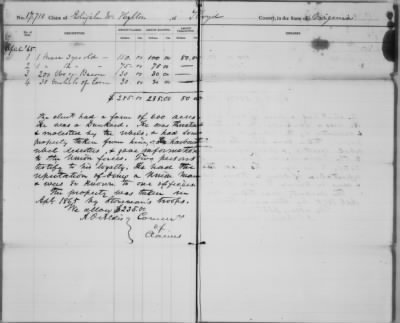 No. 17,710 Claim of Elijah W. Hylton, of Floyd County, in the State of Virginia
DESCRIPTION
REMARKS
April 65
1 1 mare 3 yr old — 150.00 100.00 50.00
2 1 " 12 " — 75.00 75.00 —
3 200 lbs of Bacon 30.00 30.00 —
4 30 bushels of corn 30.00 30.00 —
$285.00 235.00 50.00
The clmt had a farm of 600 acres.
He was a Dunkard. He was threatened
& molested by the rebels, & had some
property taken from him, & he harbored
rebel deserters, & gave information
to the Union forces. Two persons
testify to his loyalty. He had the
reputation of being a Union man
& was so known to our officers.
The property was taken in
Apl 1865 by Stoneman's troops.
We allow $235.00
A. O. Aldis
Comrs
of
Claims